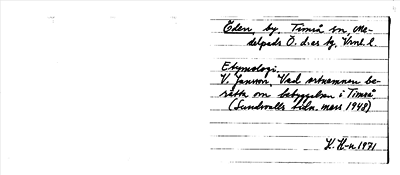 Öden, by, Timrå sn, Me-
delpads Ö. d:as kg, Vrnl. l.
Etymologi.
V. Jansson, Vad ortnamnen be-
rätta om bebyggelsen i Timrå.
(Sundsvalls tidn. mars 1948)
K. H-n. 1971